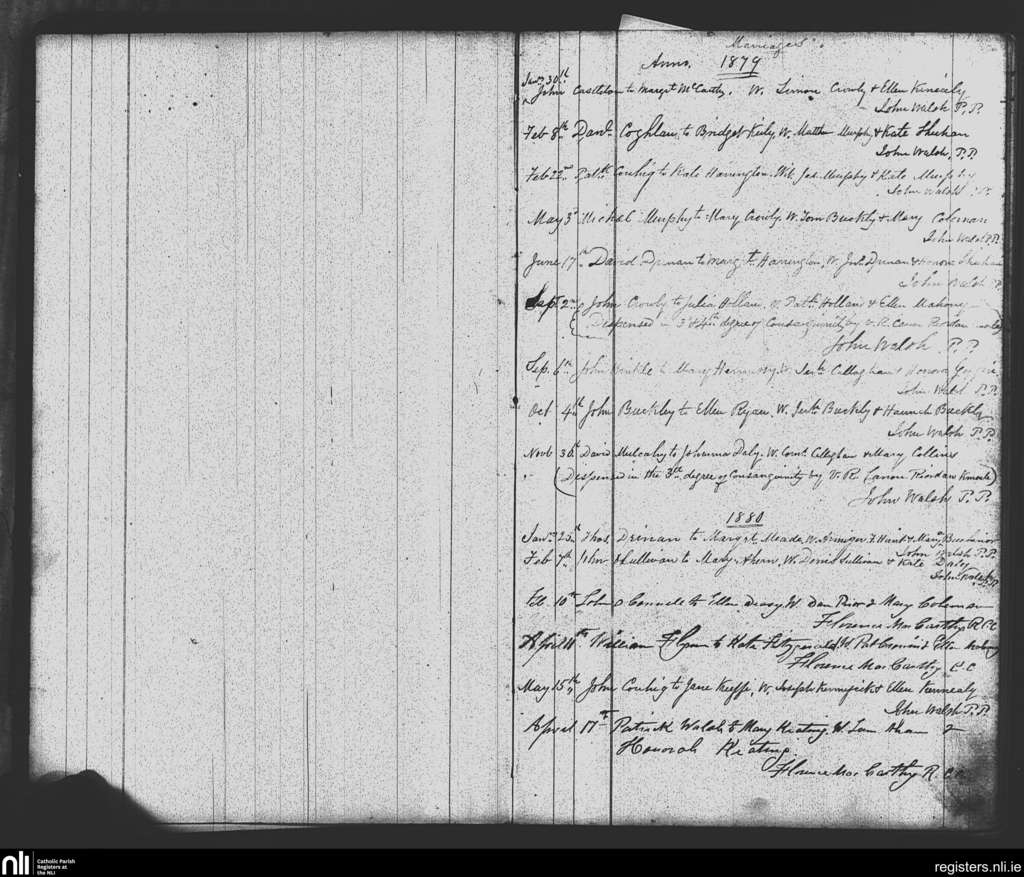 Marriages
Anno. 1879
Jany 30th
John Castleton to Margt McCarthy. W. Simon Crowly & Ellen Kinealy
John Walsh P.P.
Feb 8th Danl Coghlan to Bridget Kiely, W. Matthew Murphy & Kate Sheehan
John Walsh, P.P.
Feb 22nd Patk Couhig to Kate Harrington. Wit. Jas. Murphy & Kate Murphy
John Walsh
May 3rd Michal Murphy to Mary Crowly. W. Tom Buckly & Mary Coleman
John Walsh P.P.
June 17th David to Margt Harrington, W. & Honora Sheehan
John Walsh
Sept 2nd John Crowly to Julia Hollan. W. Patk Hollan & Ellen Mahony
(Dispensed in 3rd & 4th degree of Consanguinity by V.R. Canon Riordan
John Walsh P.P.
Sep. 6th John to Mary Hennessy, W. Callaghan & Honora
John Walsh P.P.
Oct 4th John Buckley to Ellen Ryan. W. Buckly & Hannah Buckly
John Walsh P.P.
Novb 30th David Mulcahy to Johanna Daly. W. Corns Callaghan & Mary Collins
(Dispensed in the 3rd degree of Consanguinity by V.R. Canon Riordan Kinsale)
John Walsh P.P.
1880
Jany 25th Thos. Drinan to Margt Meade, W. & Mary
John Walsh P.P.
Feb 7th John O Sullivan to Mary Ahern, W. Denis Sullivan & Kate Daly
John Walsh P.P.
Feb. 10th John O Connell to Ellen Deasy W. Dan Prior & Mary Coleman
Florence MacCarthy R.C.C.
April 11th William Flynn to Kate Fitzgerald, W. Pat Cronin & Ellen Mahony
Florence MacCarthy C.C
May 15th John Couhig to Jane Keeffe, W. Joseph & Ellen Kennealy
John Walsh P.P.
April 17th Patrick Walsh to Mary Keating. W. Tom Aham &
Honorah Keating.
Florence MacCarthy R.C.C.
nli Catholic Parish
Registers at
the NLI
registers.nli.ie